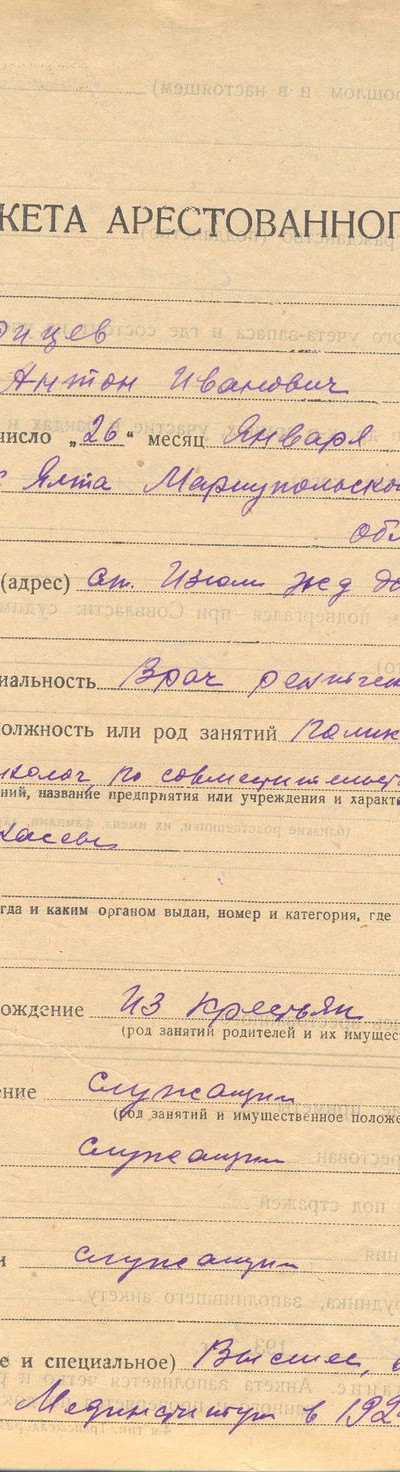 КЕТА АРЕСТОВАННОГ
Антон Иванович
число „26“ месяц Января
Ялта Мариупольско
обл
(адрес) ст. Изюм жд
иальность Врач
олжность или род занятий Полик
по совместительст
ний, название предприятия или учреждения и характ
гда и каким органом выдан, номер и категория, где
ождение Из крестьян
(род занятий родителей и их имущес
ение служащий
(род занятий и имущественное положе
служащий
и служащий
е и специальное) Высшее,
Мединститут в 192